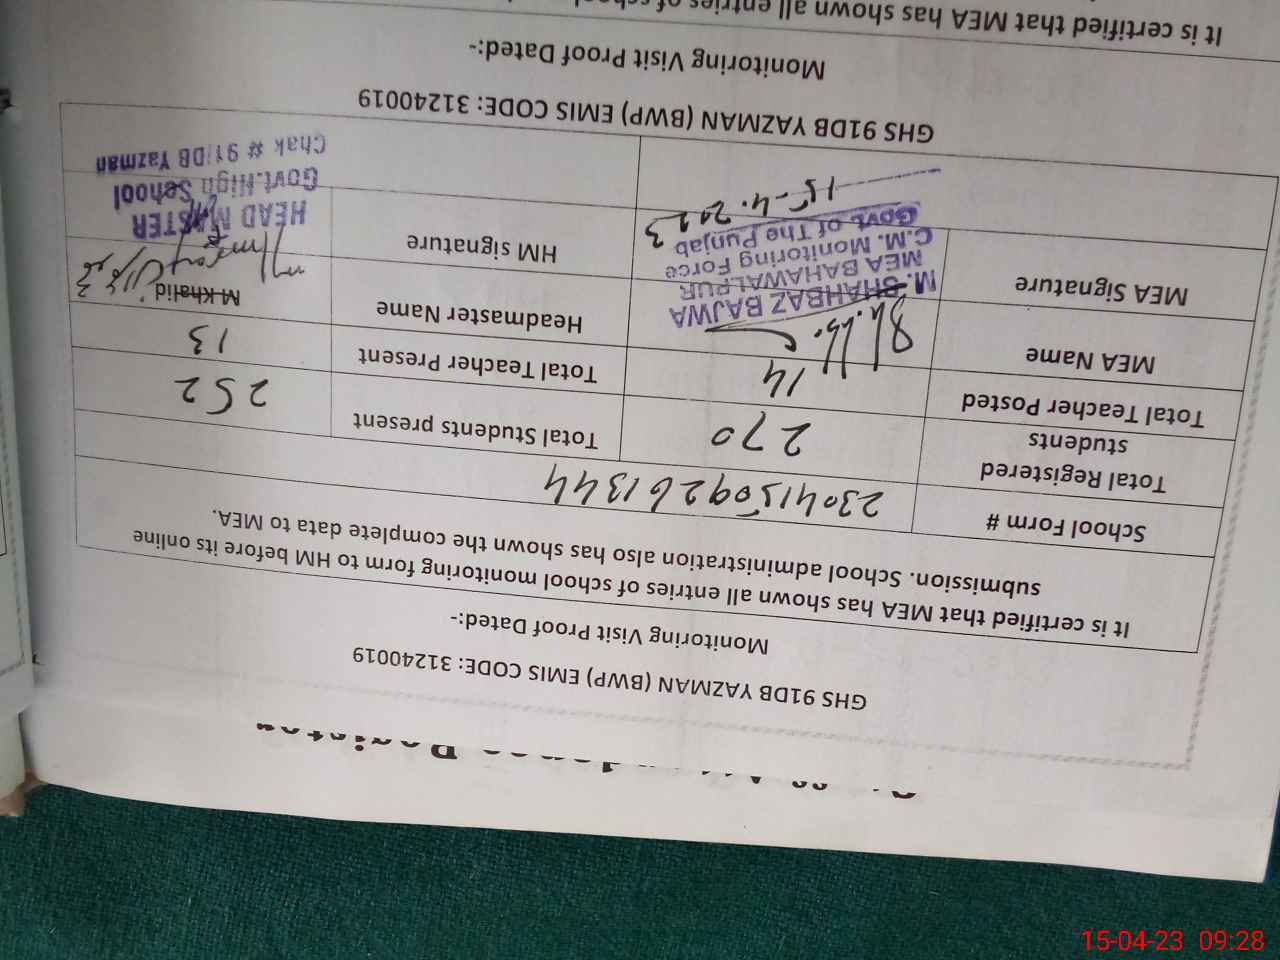 Staff Attendance Register
GHS 91DB YAZMAN (BWP) EMIS CODE: 31240019
Monitoring Visit Proof Dated:-
It is certified that MEA has shown all entries of school monitoring form to HM before its online
submission. School administration also has shown the complete data to MEA.
School Form # 23041509261344
Total Registered students 270 Total Students present 252
Total Teacher Posted 14 Total Teacher Present 13
MEA Name Headmaster Name M Khalid
M. SHAHBAZ BAJWA
MEA BAHAWALPUR
C.M. Monitoring Force
Govt. of The Punjab
MEA Signature 15-4-2023 HM signature
HEAD MASTER
Govt. High School
Chak # 91/DB Yazman
GHS 91DB YAZMAN (BWP) EMIS CODE: 31240019
Monitoring Visit Proof Dated:-
It is certified that MEA has shown all entries of school
15-04-23 09:28